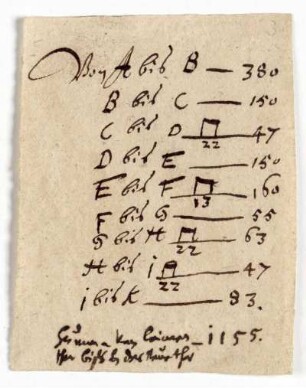 Von A bis B — 380
B bis C — 150
C bis D 22 47
D bis E — 150
E bis F 13 160
F bis G — 55
G bis H 22 63
H bis i 22 47
i bis K — 83.
1155.